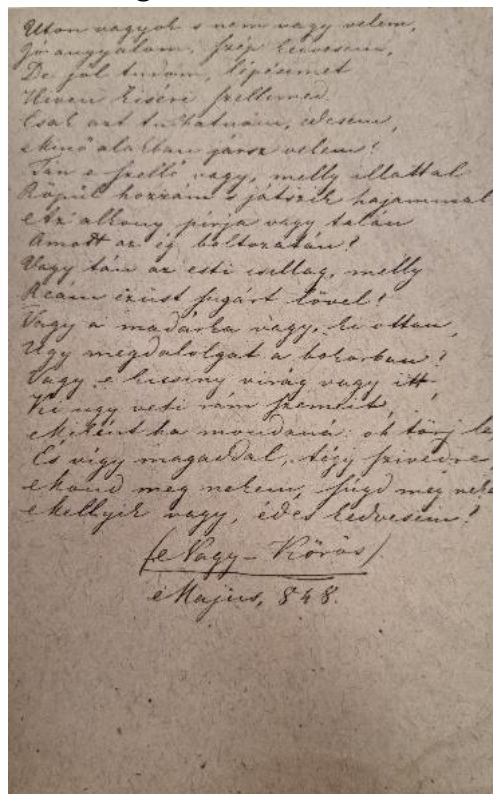 Uton vagyok s nem vagy velem,
Jó angyalom, szép kedvesem,
De jól tudom, lépésimet
Hiven kiséri szellemed.
Csak azt tudhatnám, édesem,
Minő alakban jársz velem?
Tán e szellő vagy, melly illattal
Röpül hozzám s játszik hajammal
Az alkony pirja vagy talán
Amott az ég boltozatán?
Vagy tán az esti csillag, melly
Reám ezüst sugárt lövel?
Vagy a madárka vagy, ki ottan
Ugy megdalolgat a bokorban?
Vagy e kicsiny virág vagy itt
Ki ugy veti rám szemeit,
Miként ha mondaná: oh törj le
És vígy magaddal, tégy szivedre
Mond meg nekem, súgd meg neke
Mellyik vagy, édes kedvesem!
(Nagy-Körös).
Majus, 848.